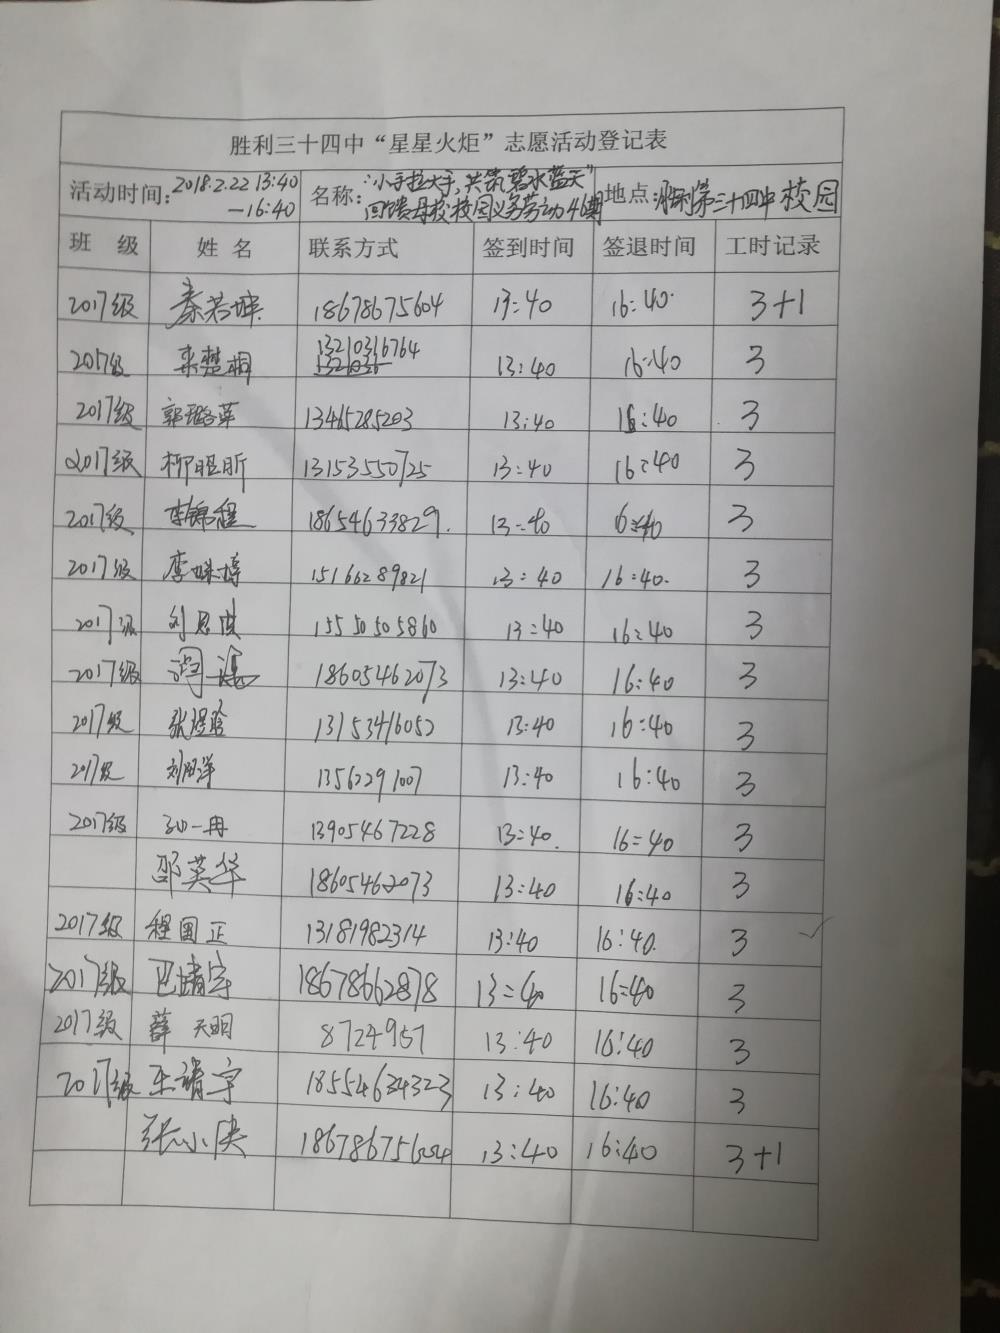 胜利三十四中“星星火炬”志愿活动登记表
活动时间：2018.2.22 13:40 —16:40 名称：“小手拉大手，共筑碧水蓝天” 回馈母校校园义务劳动46期 地点：胜利第三十四中校园
班 级 姓 名 联系方式 签到时间 签退时间 工时记录
2017级 秦若坤 18678675604 13:40 16:40 3+1
2017级 来楚桐 13210316764 13:40 16:40 3
2017级 郭璐萍 13465285203 13:40 16:40 3
2017级 柳昭昕 13153550725 13:40 16:40 3
2017级 李锦程 18654633829. 13:40 16:40 3
2017级 李姝樽 15166289821 13:40 16:40. 3
2017级 刘思 15550505860 13:40 16:40 3
2017级 18605462073 13:40 16:40 3
2017级 张煜晗 13153416052 13:40 16:40 3
2017级 刘雨洋 13562291007 13:40 16:40 3
2017级 一冉 13905467228 13:40. 16:40 3
邵英华 18605462073 13:40 16:40 3
2017级 程国正 13181982314 13:40 16:40. 3
2017级 巴靖宇 18678662878 13:40 16:40 3
2017级 薛天明 8724957 13:40 16:40 3
2017级 王靖宇 18554634323 13:40 16:40 3
张小 18678675604 13:40 16:40 3+1